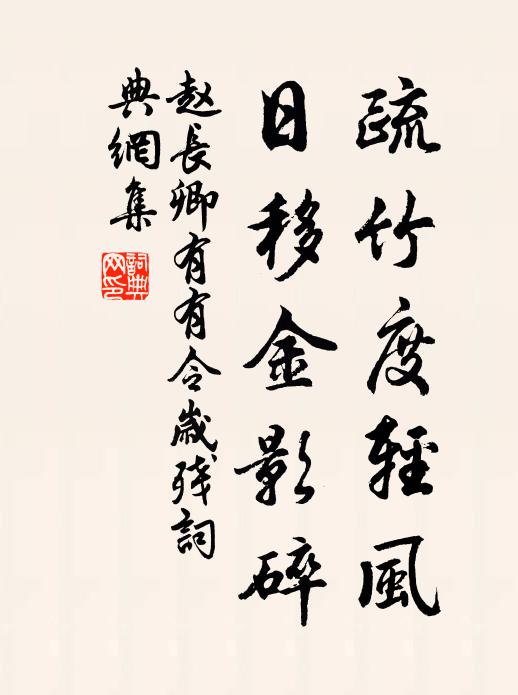 疏竹度輕風
日移金影碎
赵長卿有有令歲残詞
典網集
詞典網印